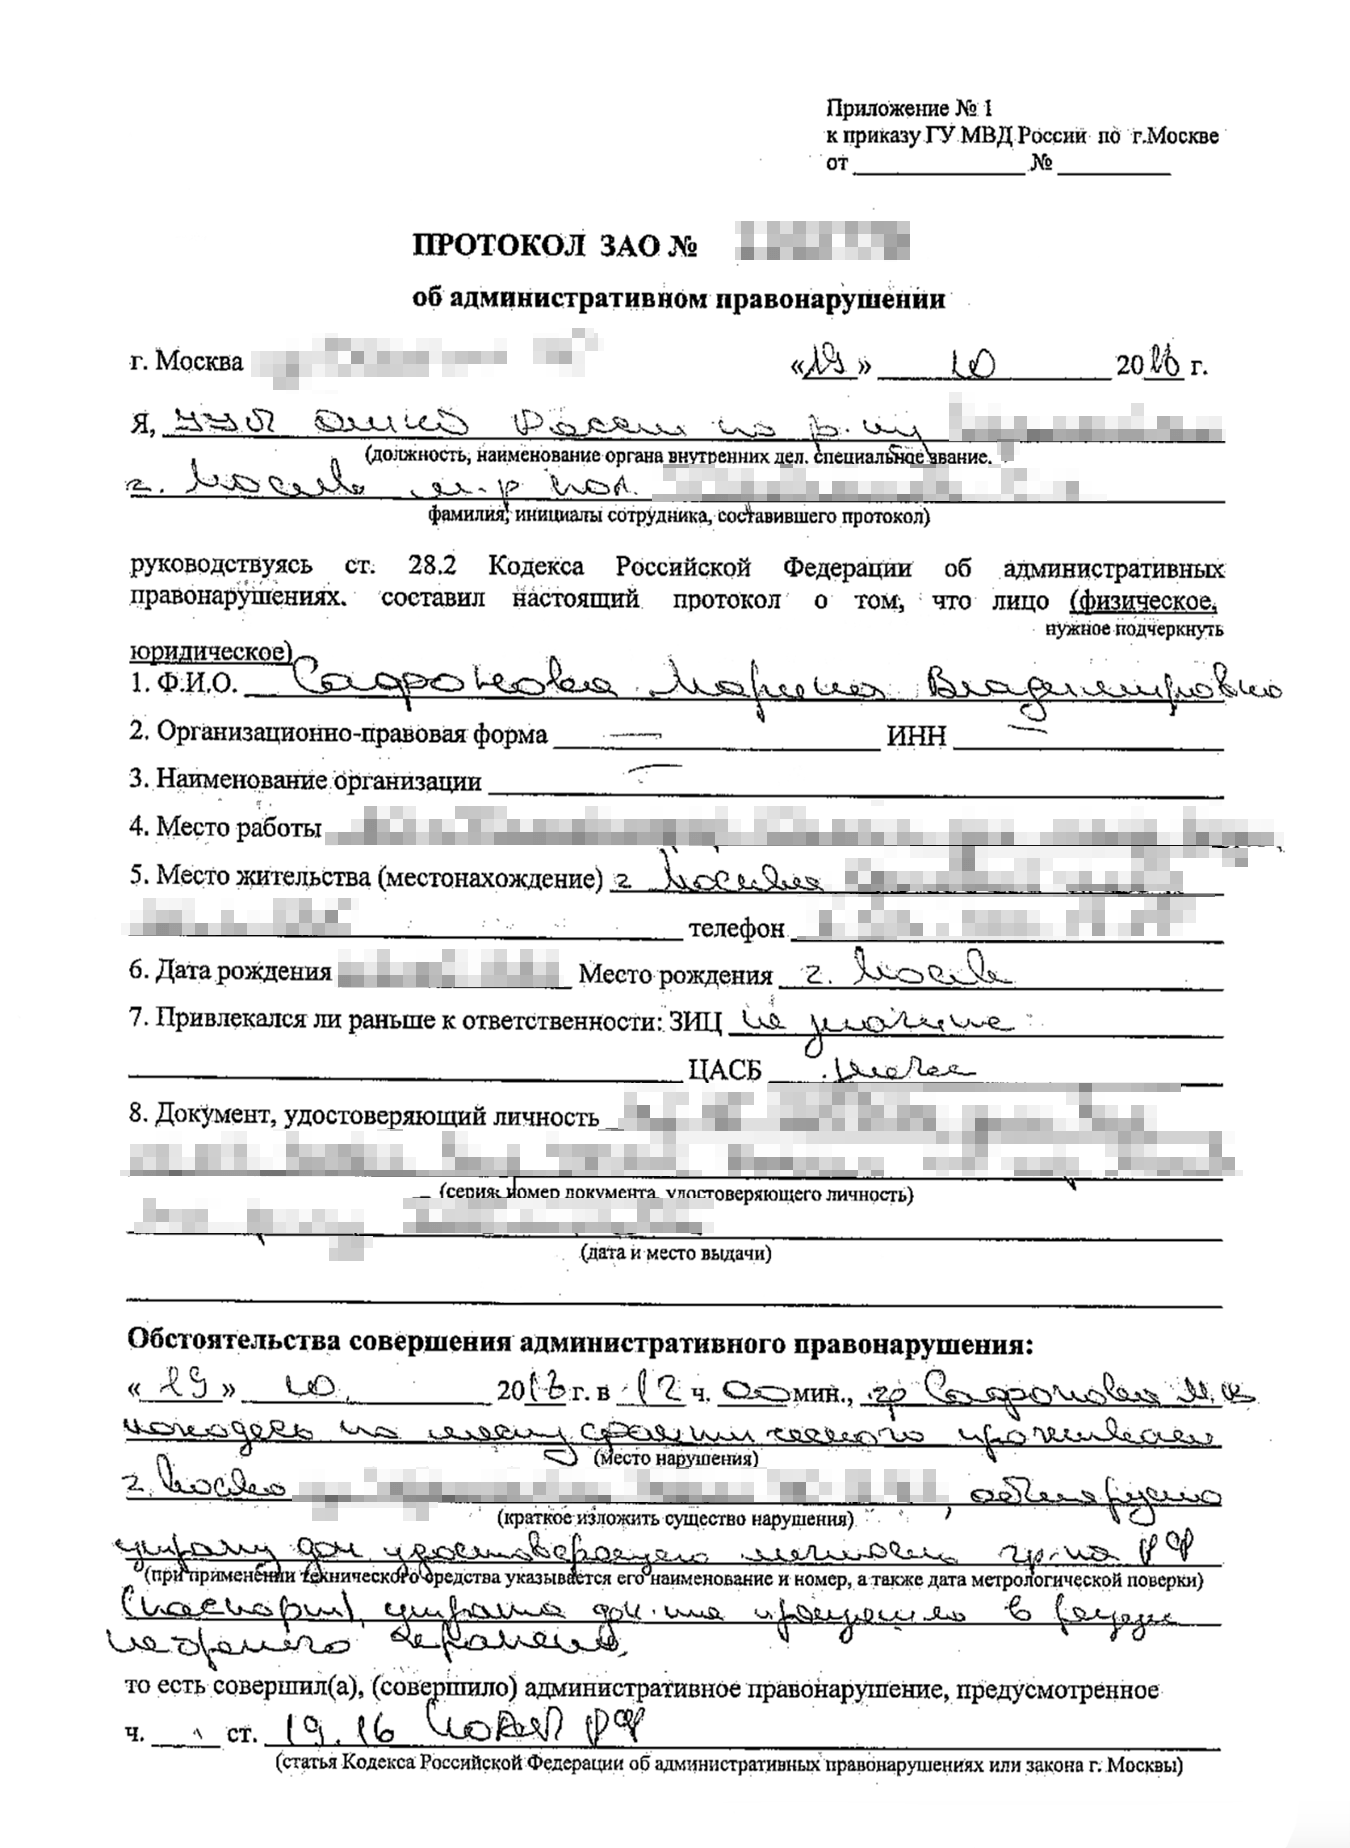 Приложение № 1
к приказу ГУ МВД России по г.Москве
от ____________ № ________
ПРОТОКОЛ ЗАО №
об административном правонарушении
г. Москва «19» 10 2016 г.
Я, УУП ОМВД России по р-ну
(должность, наименование органа внутренних дел. специальное звание.
г. Москве м-р пол.
фамилия, инициалы сотрудника, составившего протокол)
руководствуясь ст. 28.2 Кодекса Российской Федерации об административных
правонарушениях. составил настоящий протокол о том, что лицо (физическое,
нужное подчеркнуть
юридическое)
1. Ф.И.О. Сафронова Марина Владимировна
2. Организационно-правовая форма — ИНН —
3. Наименование организации —
4. Место работы
5. Место жительства (местонахождение) г Москва
телефон
6. Дата рождения Место рождения г. Москва
7. Привлекался ли раньше к ответственности: ЗИЦ не
ЦАСБ
8. Документ, удостоверяющий личность
(серия, номер документа, удостоверяющего личность)
(дата и место выдачи)
Обстоятельства совершения административного правонарушения:
«19» 10. 2016 г. в 12 ч. 00 мин., гр Сафронова М.В
находясь по месту фактического проживания
(место нарушения)
г. Москва , обнаружила
(краткое изложить существо нарушения)
утрату док удостоверяющего личность гр-на РФ
(при применении технического средства указывается его наименование и номер, а также дата метрологической поверки)
(паспорт), утрата док-та произошла в результате
небрежного хранения.
то есть совершил(а), (совершило) административное правонарушение, предусмотренное
ч. ____ ст. 19.16 КоАП РФ
(статья Кодекса Российской Федерации об административных правонарушениях или закона г. Москвы)